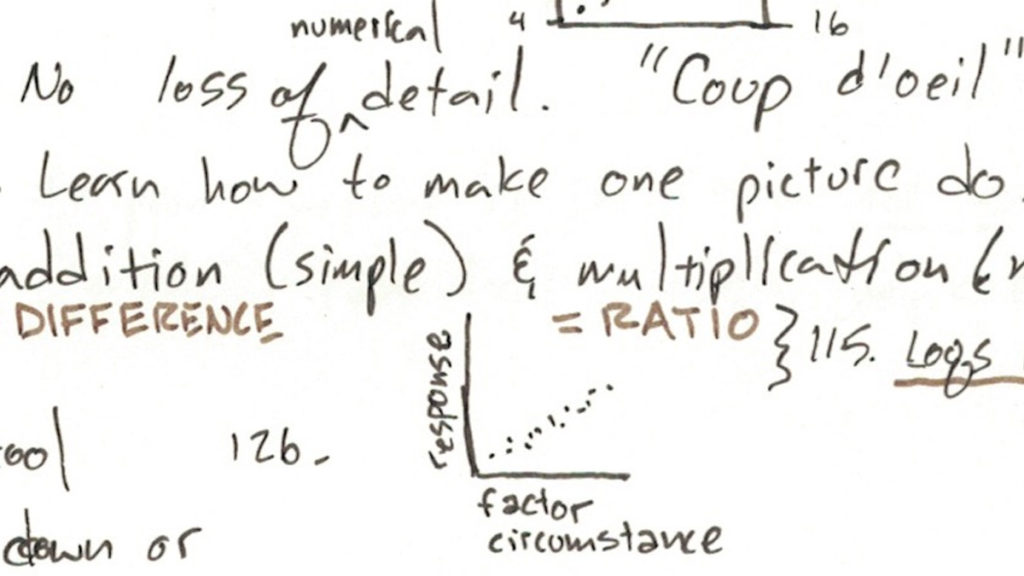 numerical 4 16
No loss of ^ detail. "Coup d'oeil"
Learn how to make one picture do
addition (simple) & multiplication (
DIFFERENCE = RATIO } 115. Logs
response
126.
factor
circumstance
down or